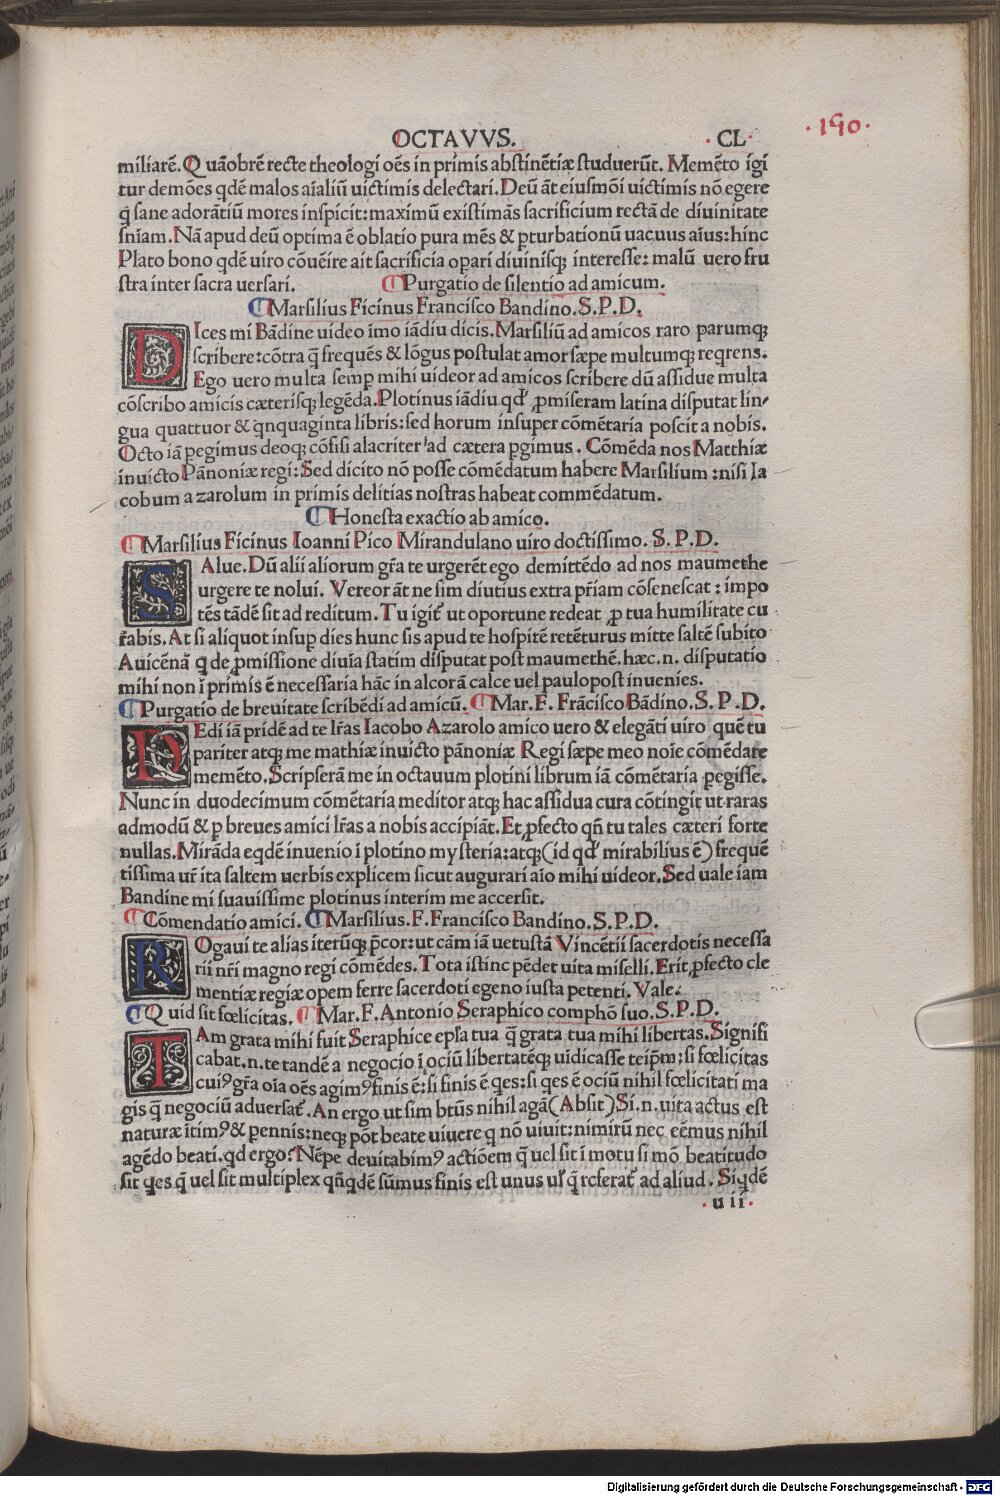 OCTAVVS. ·CL·
·190·
miliarē. Quāobrē recte theologi oēs in primis abstinētiæ studuerūt. Memēto igi
tur demōes qdē malos aīaliū uictimis delectari. Deū āt eiusmōi uictimis nō egere
q̄ sane adorātiū mores inspicit: maximū existimās sacrificium rectā de diuinitate
sniam. Nā apud deū optima ē oblatio pura mēs & pturbationū uacuus aīus: hinc
Plato bono qdē uiro cōuēire ait sacrificia opari diuinisq; interesse: malū uero fru
stra inter sacra uersari. ¶Purgatio de silentio ad amicum.
¶Marsilius Ficinus Francisco Bandino. S.P.D.
DIces mi Bādine uideo īmo iādiu dicis. Marsiliū ad amicos raro parumq;
scribere: cōtra q̄ frequēs & lōgus postulat amor sæpe multumq; reqrens.
Ego uero multa semp mihi uideor ad amicos scribere dū assidue multa
cōscribo amicis cæterisq; legēda. Plotinus iādiu qd' pmiseram latina disputat lin-
gua quattuor & qnquaginta libris: sed horum insuper cōmētaria poscit a nobis.
Octo iā pegimus deoq; cōfisi alacriter ad cætera pgimus. Cōmēda nos Matthiæ
inuicto Pānoniæ regi: Sed dicito nō posse cōmēdatum habere Marsilium: nisi Ia
cobum azarolum in primis delitias nostras habeat commēdatum.
¶Honesta exactio ab amico.
¶Marsilius Ficinus Ioanni Pico Mirandulano uiro doctissimo. S.P.D.
SAlue. Dū alii aliorum gr̄a te urgerēt ego demittēdo ad nos maumethe
urgere te nolui. Vereor āt ne sim diutius extra pr̄iam cōsenescat: impo
tēs tādē sit ad reditum. Tu igit̄ ut oportune redeat p tua humilitate cu
rabis. At si aliquot insup dies hunc sis apud te hospitē retēturus mitte saltē subito
Auicēnā q de pmissione diuīa statim disputat post maumethē. hæc .n. disputatio
mihi non ī primis ē necessaria hāc in alcorā calce uel paulopost inuenies.
¶Purgatio de breuitate scribēdi ad amicū. ¶Mar. F. Frācisco Bādino. S.P.D.
DEdi iā pridē ad te lr̄as Iacobo Azarolo amico uero & elegāti uiro quē tu
pariter atq; me mathiæ inuicto pānoniæ Regi sæpe meo noīe cōmēdare
memēto. Scripserā me in octauum plotini librum iā cōmētaria pegisse.
Nunc in duodecimum cōmētaria meditor atq; hac assidua cura cōtingit ut raras
admodū & p breues amici lr̄as a nobis accipiāt. Et pfecto qn̄ tu tales cæteri forte
nullas. Mirāda eqdē inuenio ī plotino mysteria: atq; (id qd' mirabilius ē) frequē
tissima ur̄ ita saltem uerbis explicem sicut augurari aīo mihi uideor. Sed uale iam
Bandine mi suauissime plotinus interim me accersit.
¶Cōmendatio amici. ¶Marsilius. F. Francisco Bandino. S.P.D.
ROgaui te alias iterūq; p̄cor: ut cām iā uetustā Vincētii sacerdotis necessa
rii nr̄i magno regi cōmēdes. Tota istinc pēdet uita miselli. Erit pfecto cle
mentiæ regiæ opem ferre sacerdoti egeno iusta petenti. Vale.
¶Quid sit fœlicitas. ¶Mar. F. Antonio Seraphico comphō suo. S.P.D.
TAm grata mihi fuit Seraphice epl̄a tua q̄ grata tua mihi libertas. Signifi
cabat .n. te tandē a negocio ī ociū libertatēq; uidicasse teipm̄: si fœlicitas
cuiꝰ gr̄a oīa oēs agimꝰ finis ē: si finis ē qes: si qes ē ociū nihil fœlicitati ma
gis q̄ negociū aduersat̄. An ergo ut sim btūs nihil agā (Absit) Si .n. uita actus est
naturæ ītimꝰ & pennis: neq; pōt beate uiuere q nō uiuit: nimirū nec eēmus nihil
agēdo beati. qd ergo? Nēpe deuitabimꝰ actiōem q̄ uel sit ī motu si mō beatitudo
sit qes q̄ uel sit multiplex qn̄qdē sūmus finis est unus ul' q̄ referat̄ ad aliud. Siqdē
·uii·
Digitalisierung gefördert durch die Deutsche Forschungsgemeinschaft - DFG